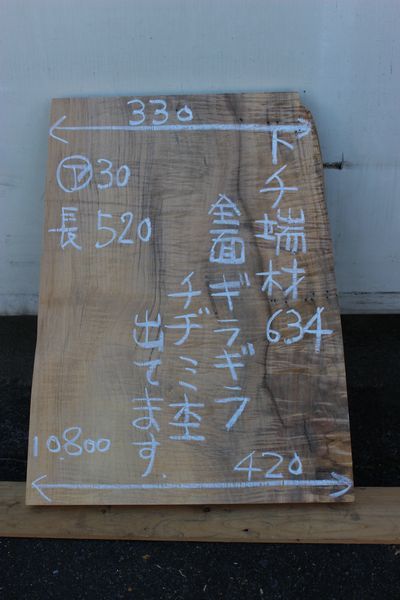 330
トチ端材
634
㋐30
長520
全面ギラギラ
チヂミ杢
出てます
10.800
420